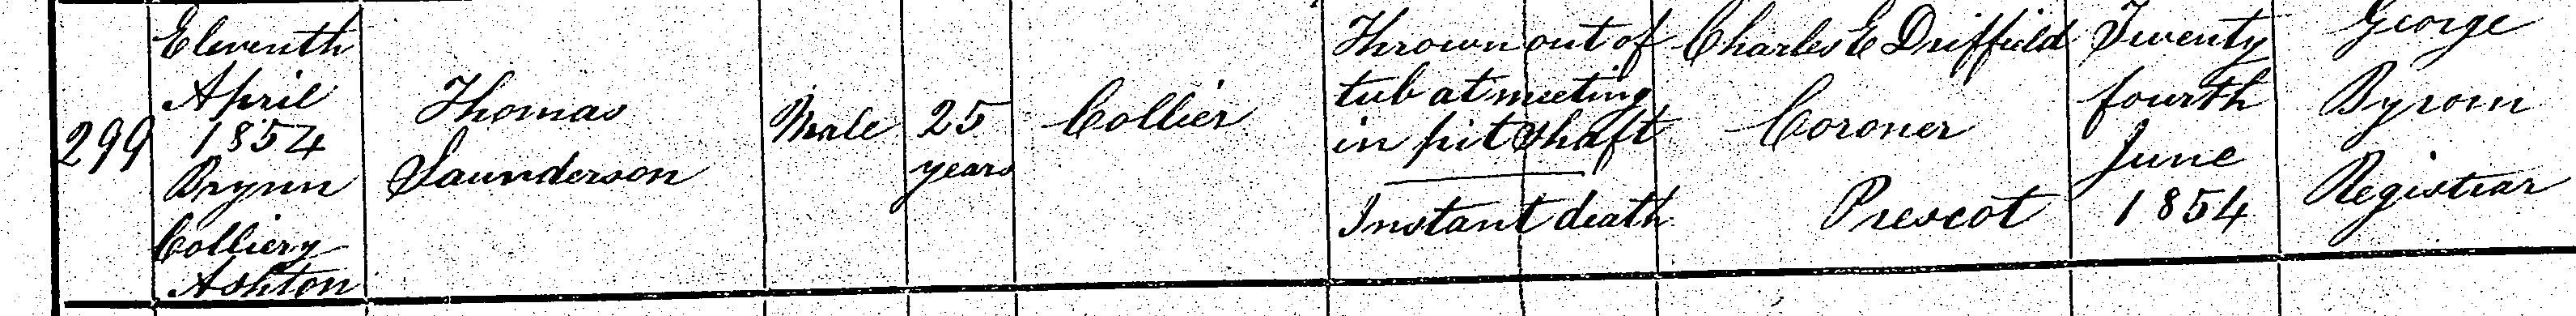 299
Eleventh
April
1854
Brynn
Colliery
Ashton
Thomas
Saunderson
Male
25
years
Collier
Thrown out of
tub at meeting
in pit shaft
Instant death
Charles E Driffield
Coroner
Prescot
Twenty
fourth
June
1854
George
Byrom
Registrar